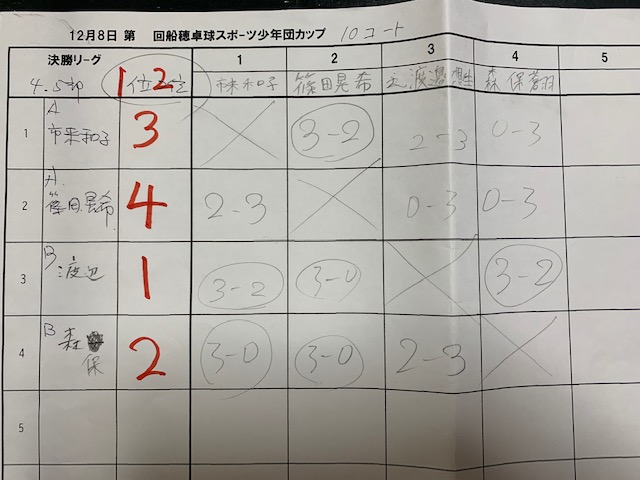 12月8日 第 回船穂卓球スポーツ少年団カップ 10コート
決勝リーグ 1 2 3 4 5
4.5部 12位 和子 篠田晃希 渡邉 森 保蒼羽
1 A 和子 3 3-2 2-3 0-3
2 A 篠田晃希 4 2-3 0-3 0-3
3 B 渡辺 1 3-2 3-0 3-2
4 B 森保 2 3-0 3-0 2-3
5